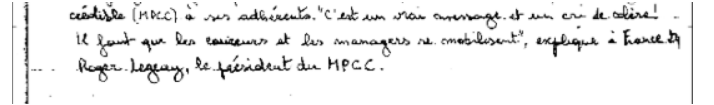 crédible (MPCC) à ses adhérents. "C'est un vrai message et un cri de colère !
Il faut que les coureurs et les managers se mobilisent", explique à France 24
Roger Legeay, le président du MPCC.